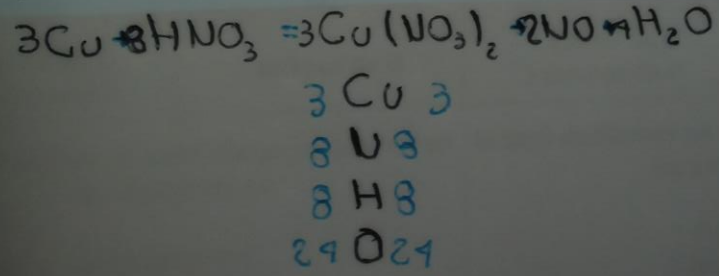 3Cu + 8HNO₃ = 3Cu(NO₃)₂ + 2NO + 4H₂O
3 Cu 3
8 N 8
8 H 8
24 O 24